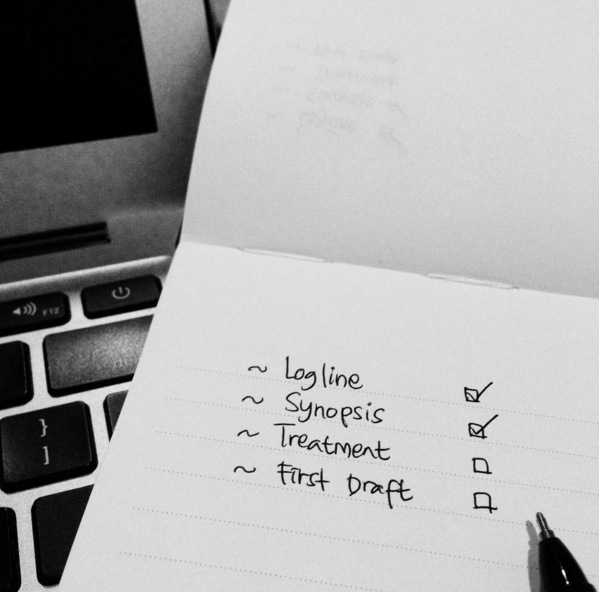 F12
}
]
~ Logline ☑
~ Synopsis ☑
~ Treatment ☐
~ First Draft ☐